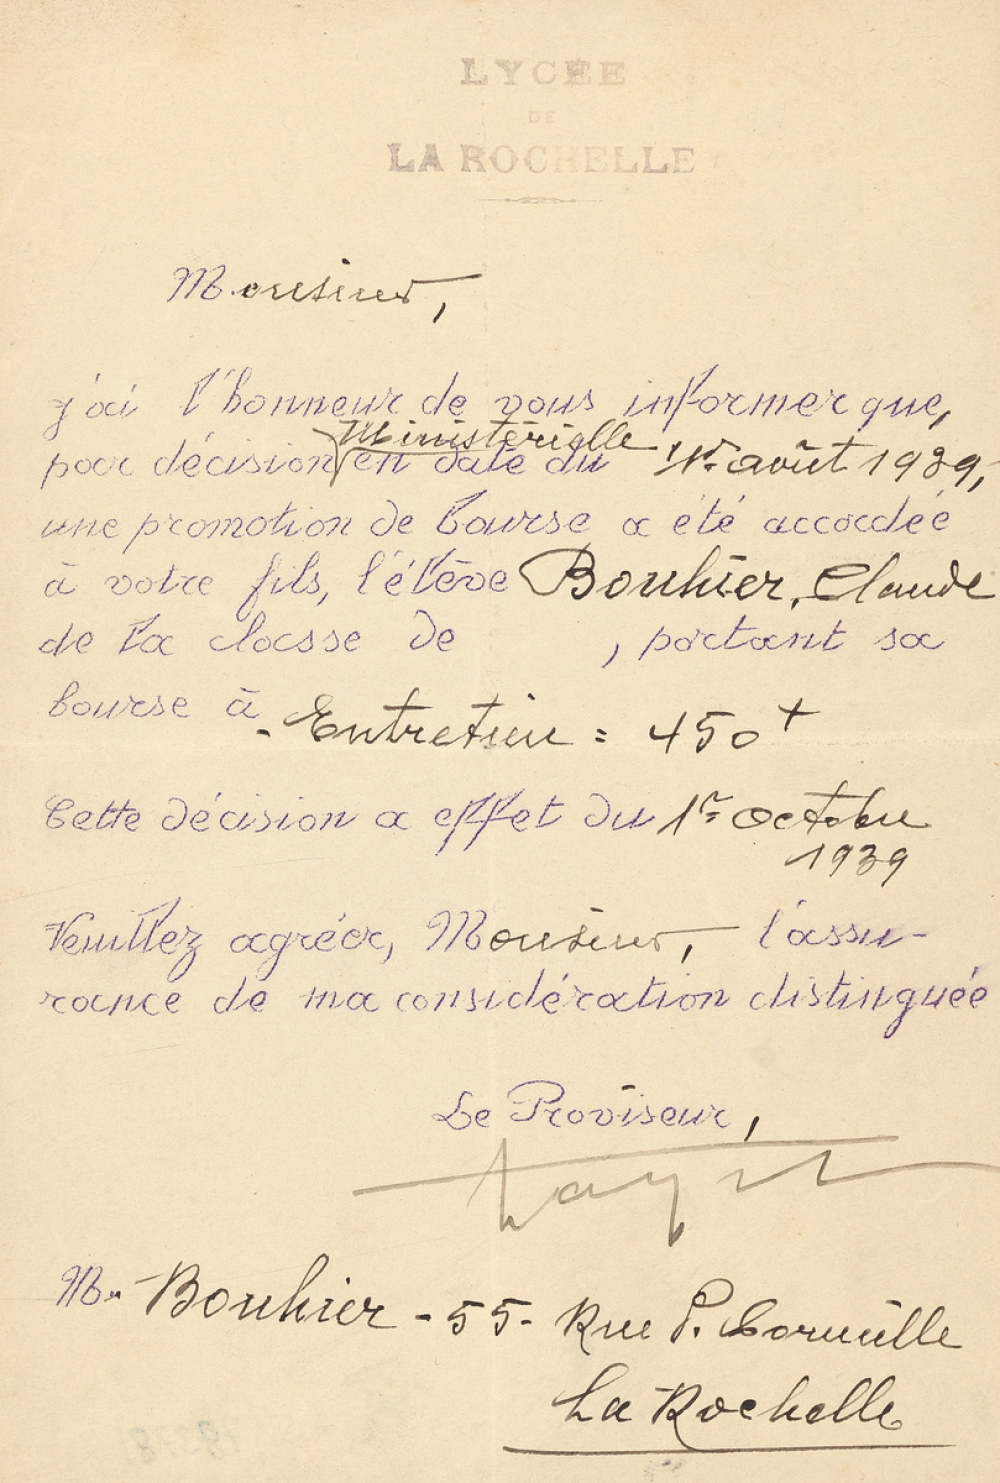 LYCÉE
DE
LA ROCHELLE
Monsieur,
j'ai l'honneur de vous informer que,
Ministérielle
par décision en date du 1er août 1939,
une promotion de bourse a été accordée
à votre fils, l'élève Bouhier, Claude
de la classe de , portant sa
bourse à Entretien = 450
Cette décision a effet du 1er octobre
1939
Veuillez agréer, Monsieur, l'assu-
rance de ma considération distinguée
Le Proviseur,
Mr Bouhier - 55 - Rue P. Corneille
La Rochelle